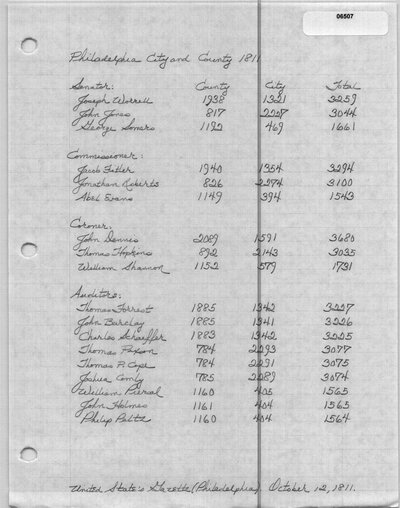 06507
Philadelphia City and County 1811
Senator: County City Total
Joseph Worrell 1938 1321 3259
John Jones 817 2227 3044
George Somers 1192 469 1661
Commissioner:
Jacob Fitler 1940 1354 3294
Jonathan Roberts 826 2274 3100
Abel Evans 1149 394 1543
Coroner:
John Dennis 2089 1591 3680
Thomas Hopkins 892 2143 3035
William Shannon 1152 579 1731
Auditors:
Thomas Forrest 1885 1342 3227
John Barclay 1885 1341 3226
Charles Schaeffer 1883 1342 3225
Thomas Paxson 784 2293 3077
Thomas P. Cope 784 2291 3075
Joshua Comly 785 2289 3074
William 1160 405 1565
John Holmes 1161 404 1565
Philip Peltz 1160 404 1564
United State's Gazette (Philadelphia). October 12, 1811.